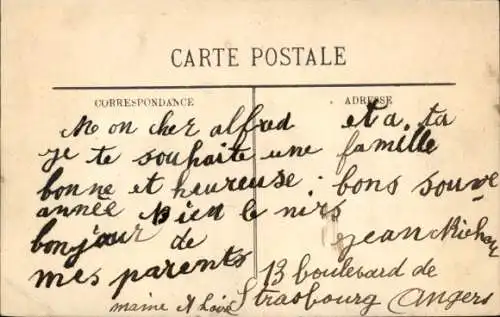 CARTE POSTALE
CORRESPONDANCE
ADRESSE
Mon cher alfred et a ta
je te souhaite une famille
bonne et heureuse : bons souve
année Bien le nirs
bonjour de jean Richar
mes parents 13 boulevard de
maine et loire Strasbourg Angers